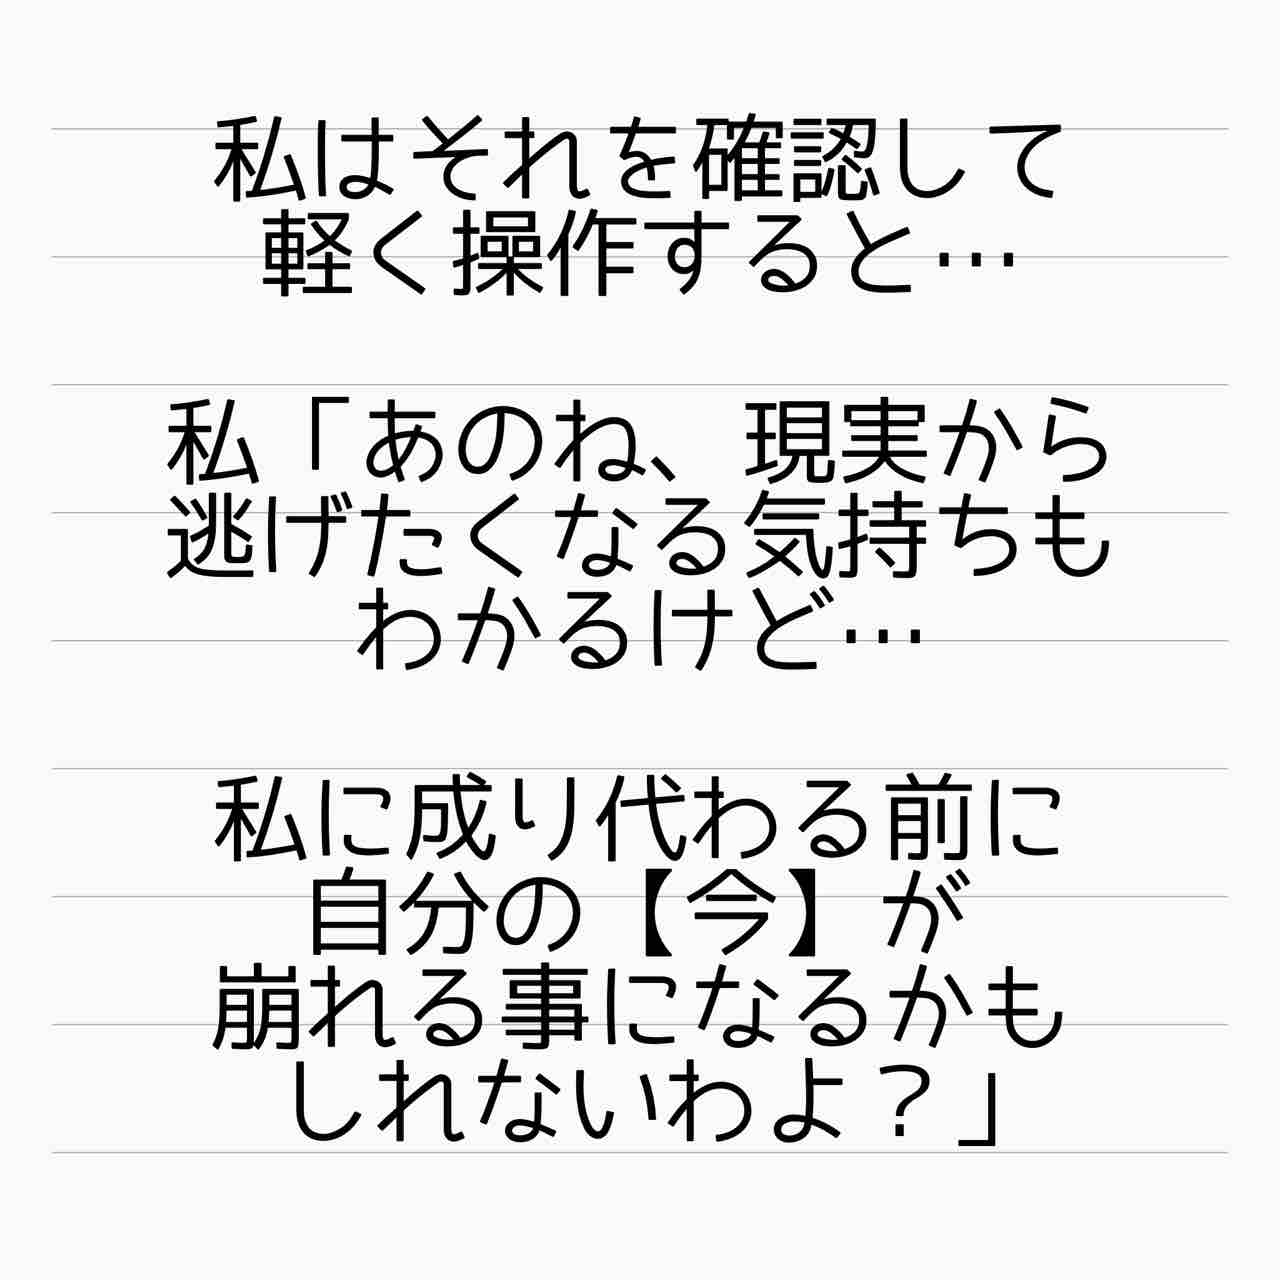 私はそれを確認して
軽く操作すると…
私「あのね、現実から
逃げたくなる気持ちも
わかるけど…
私に成り代わる前に
自分の【今】が
崩れる事になるかも
しれないわよ？」